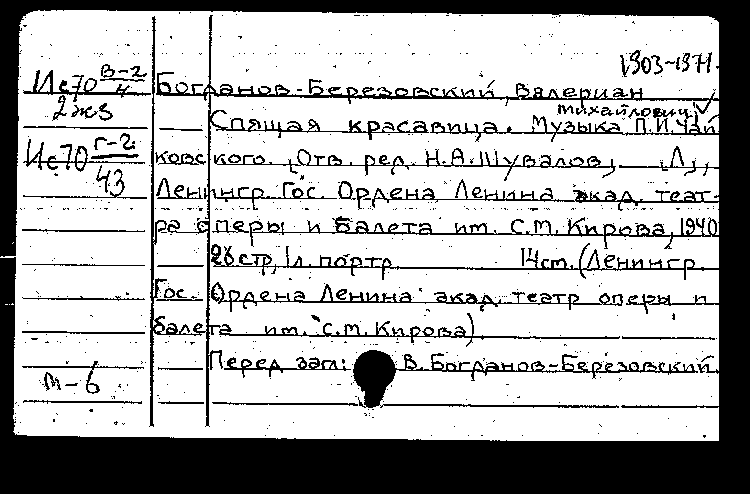 1903-1971.
Ис70 в-2/4
2жз
Богданов-Березовский, Валериан
Михайлович
— Спящая красавица. Музыка П.И.Чай
Ис70 г-2/43
ковского. [Отв. ред. Н.А.Шувалов]. — [Л.],
Ленингр. Гос. Ордена Ленина акад. теат-
ра оперы и балета им. С.М. Кирова, 1940
26 стр, 1л. портр. 14см. (Ленингр.
Гос. Ордена Ленина акад. театр оперы и
балета им. С.М. Кирова)
Перед загл: В. Богданов-Березовский.
м-6